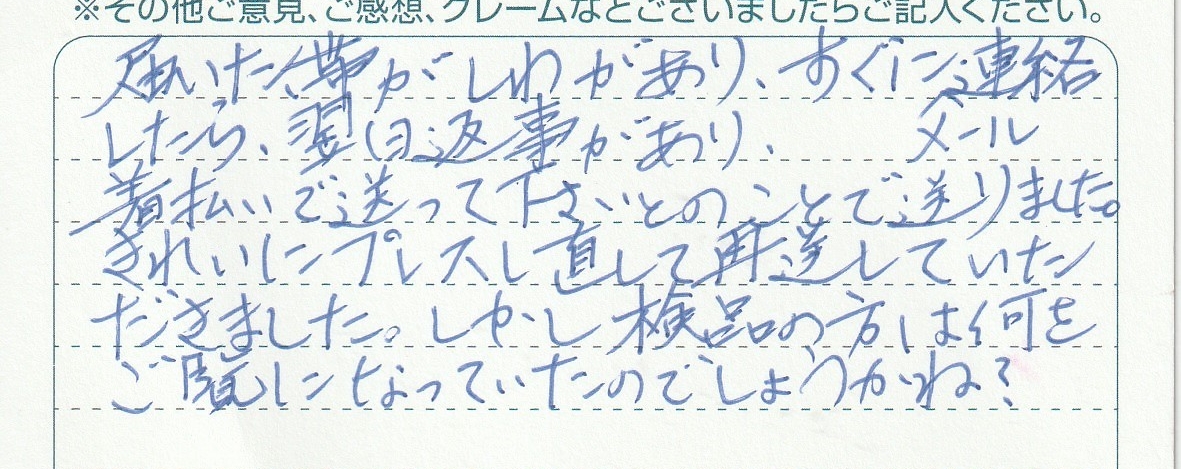 ※その他ご意見、ご感想、クレームなどございましたらご記入ください。
届いた帯がしわがあり、すぐに連絡
したら、翌日返事があり、メール
着払いで送って下さいとのことで送りました。
きれいにプレスし直して再送していた
だきました。しかし検品の方は何を
ご覧になっていたのでしょうかね?